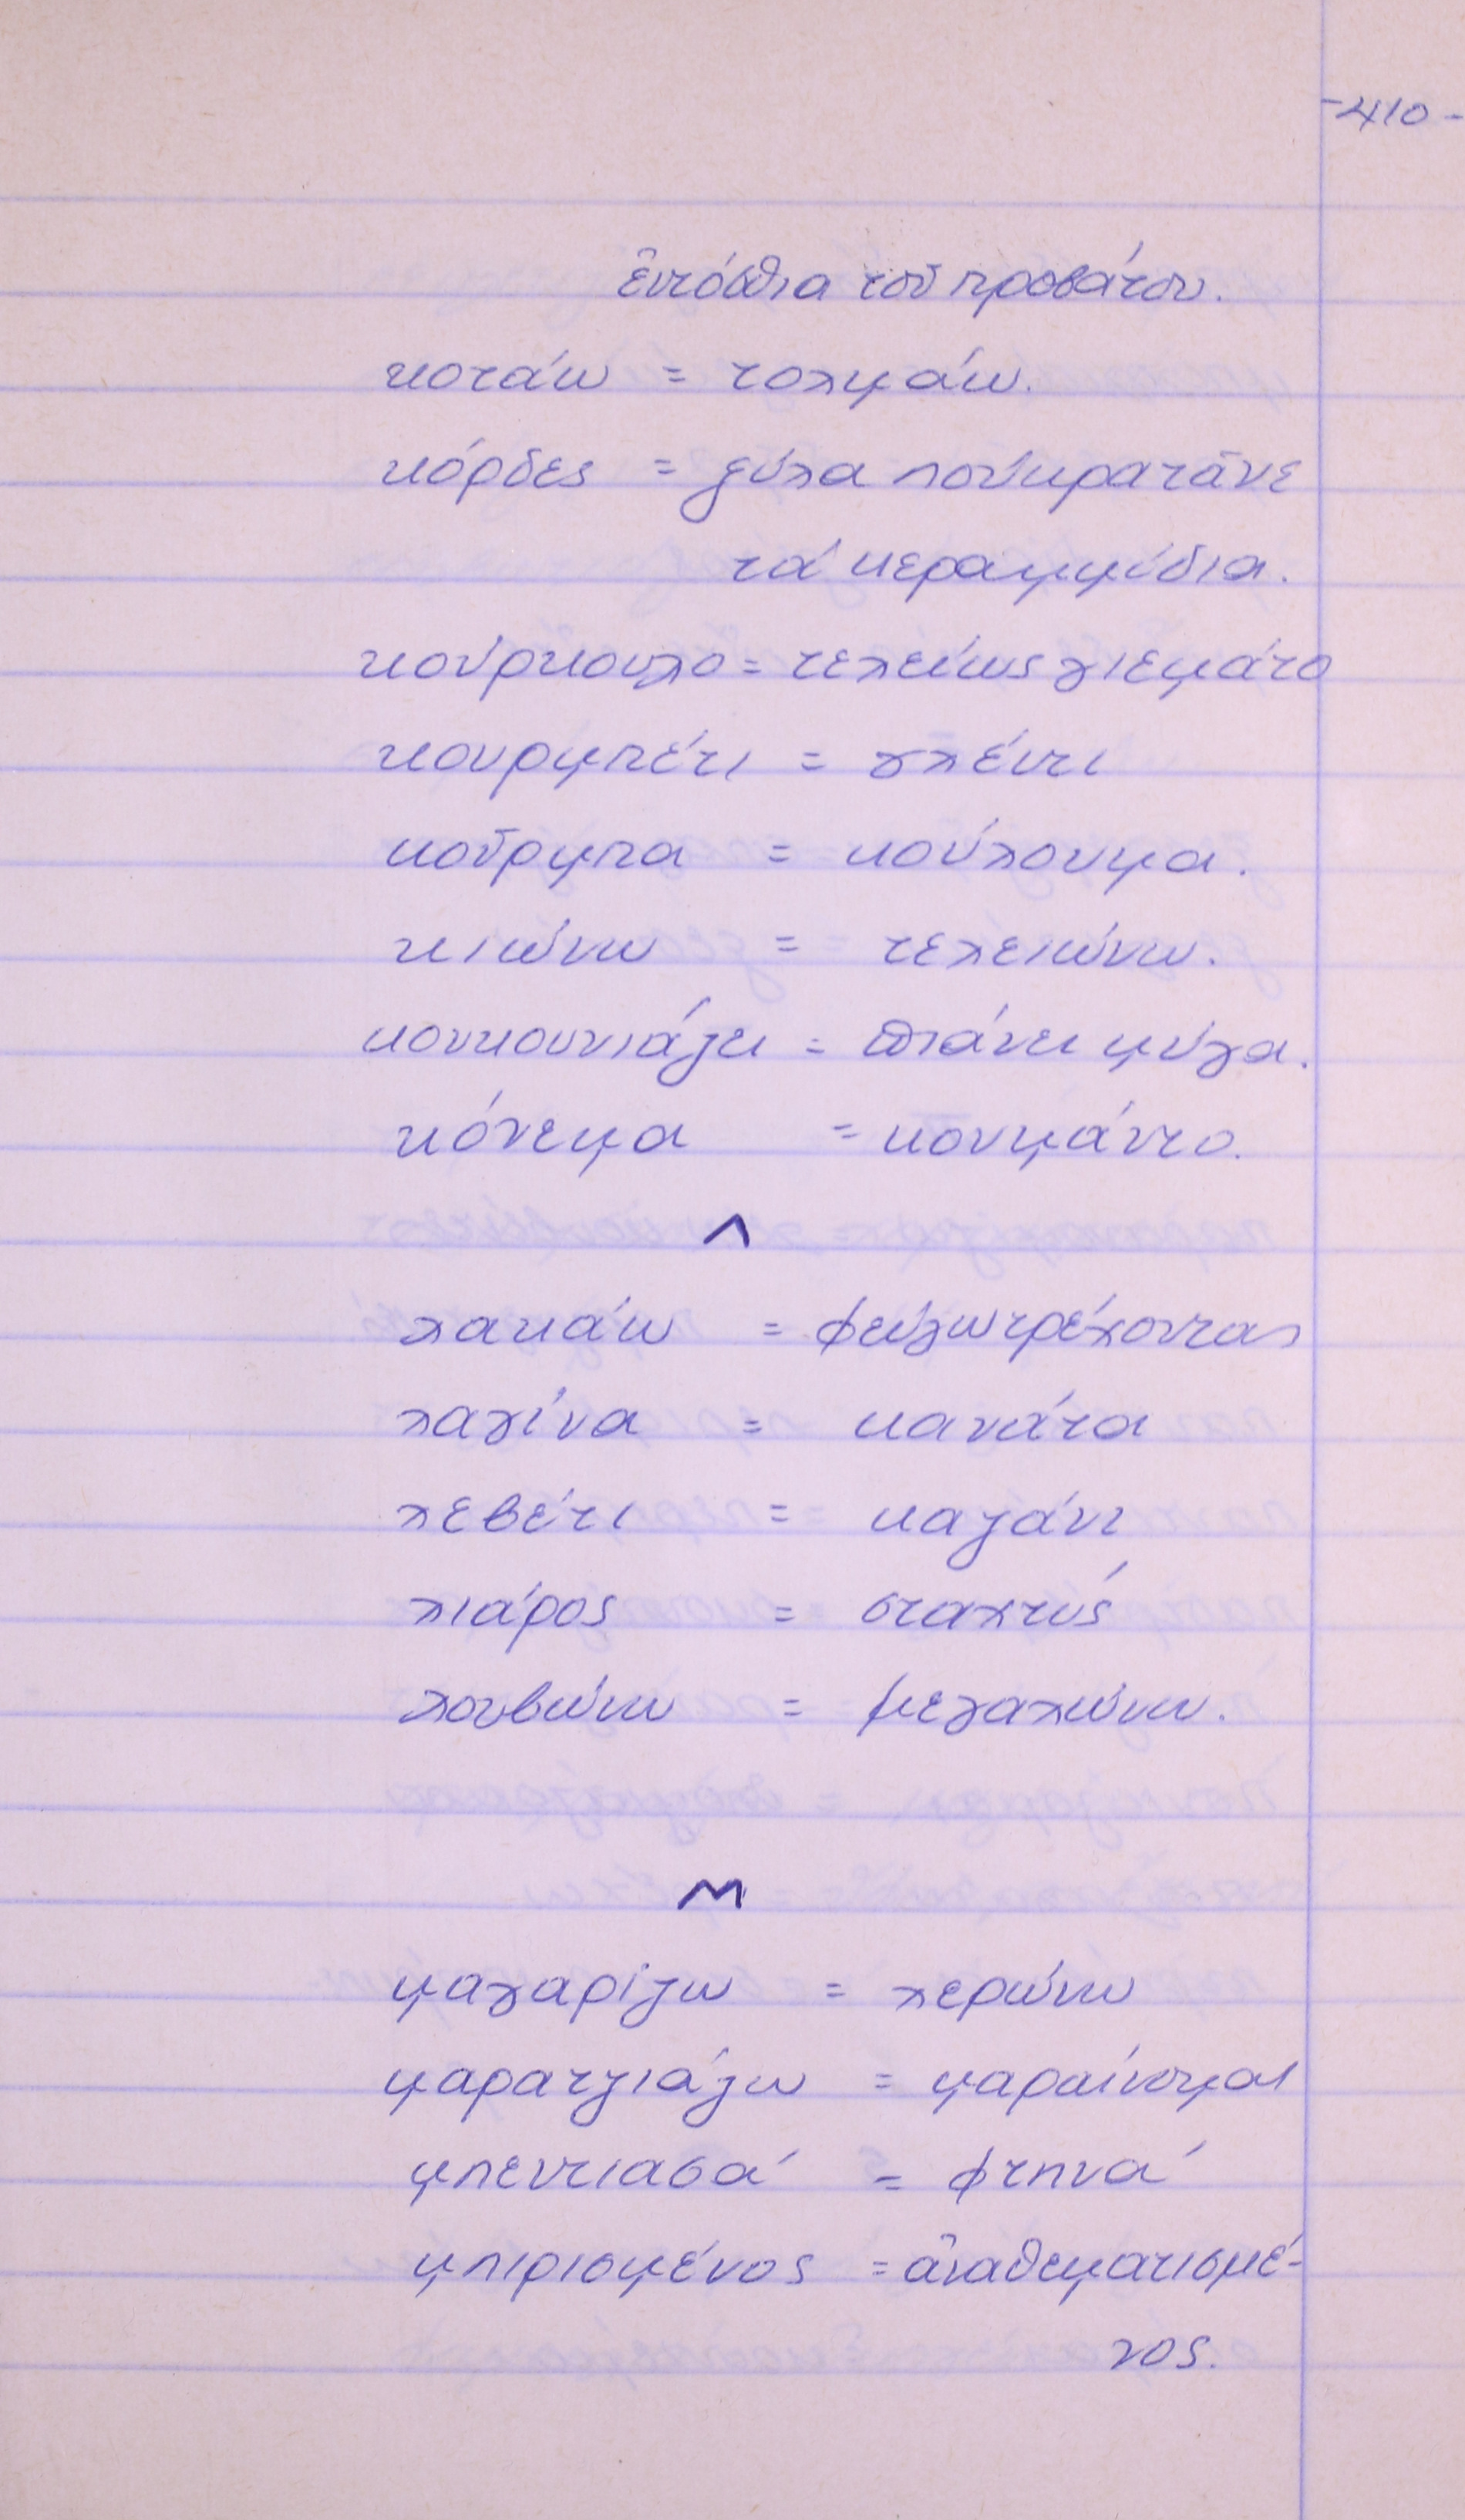 -410-
ἐντόσθια τοῦ προβάτου.
κοτάω = τολμάω.
κόρδες = ξύλα πού κρατᾶνε
τά κεραμμίδια.
κούρκουλο = τελείως γιεμάτο
κουρμπέτι = γλέντι
κοῦρμπα = κούλουμα.
κιώνω = τελειώνω.
κουκουνιάζει = πιάνει μύγα.
κόνεμα = κουμάντο.
Λ
λακάω = φεύγω τρέχοντας
λαγίνα = κανάτα
λεβέτι = καζάνι
λιάρος = σταχτύς
λουβώνω = μεγαλώνω.
Μ
μαγαρίζω = λερώνω
μαρατζιάζω = μαραίνομαι
μπεντιασά = φτηνά
μπιρισμένος = ἀναθεματισμέ-
νος.